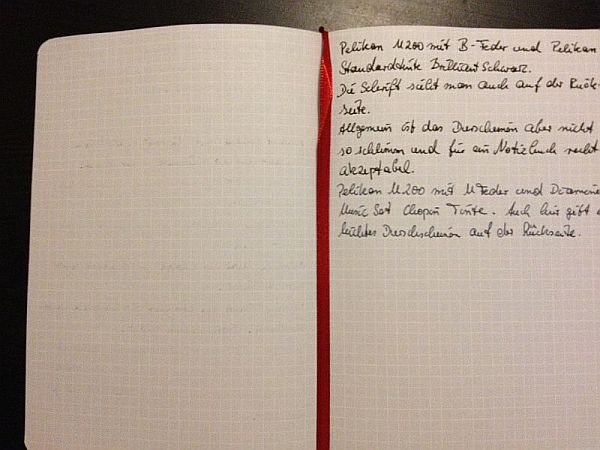 Pelikan M200 mit B-Feder und Pelikan
Standardtinte Brilliant Schwarz.
Die Schrift sieht man auch auf der Rück-
seite.
Allgemein ist das Durchscheinen aber nicht
so schlimm und für ein Notizbuch recht
akzeptabel.
Pelikan M200 mit M Feder und Diamine
Music Set Chopin Tinte. Auch hier gibt
leichtes Durchscheinen auf der Rückseite.